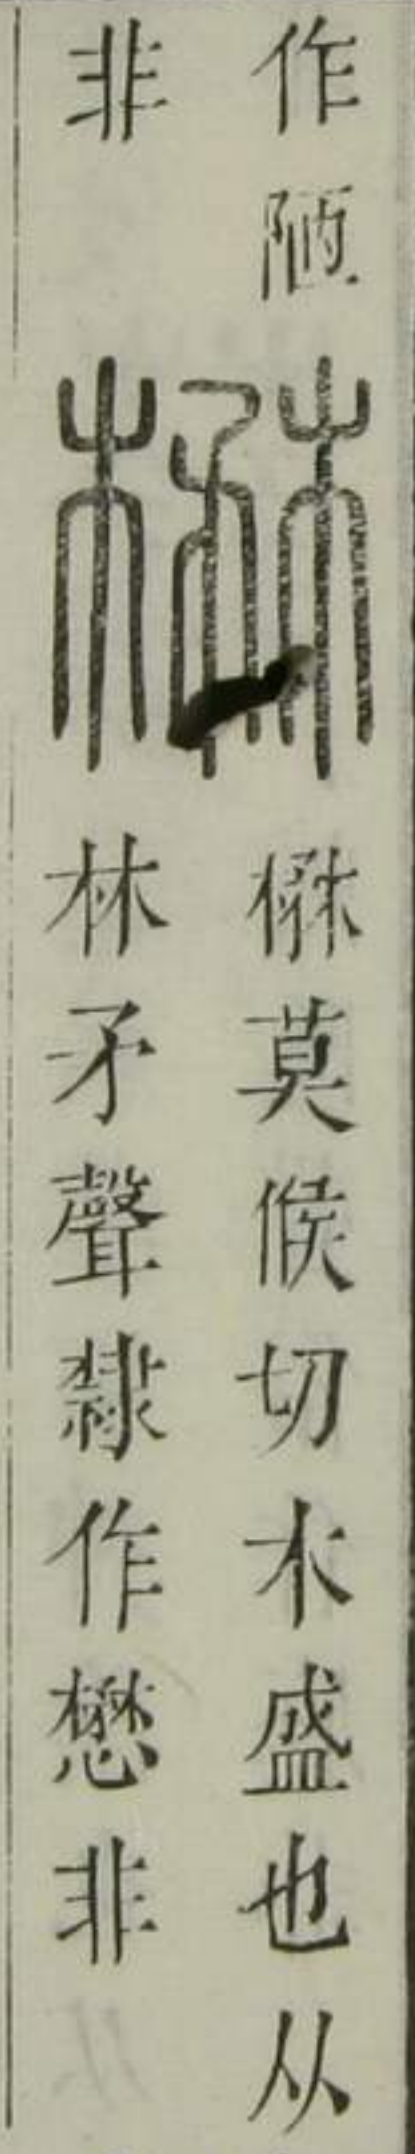 作陋
非
楙
楙莫候切木盛也从
林矛聲隸作懋非